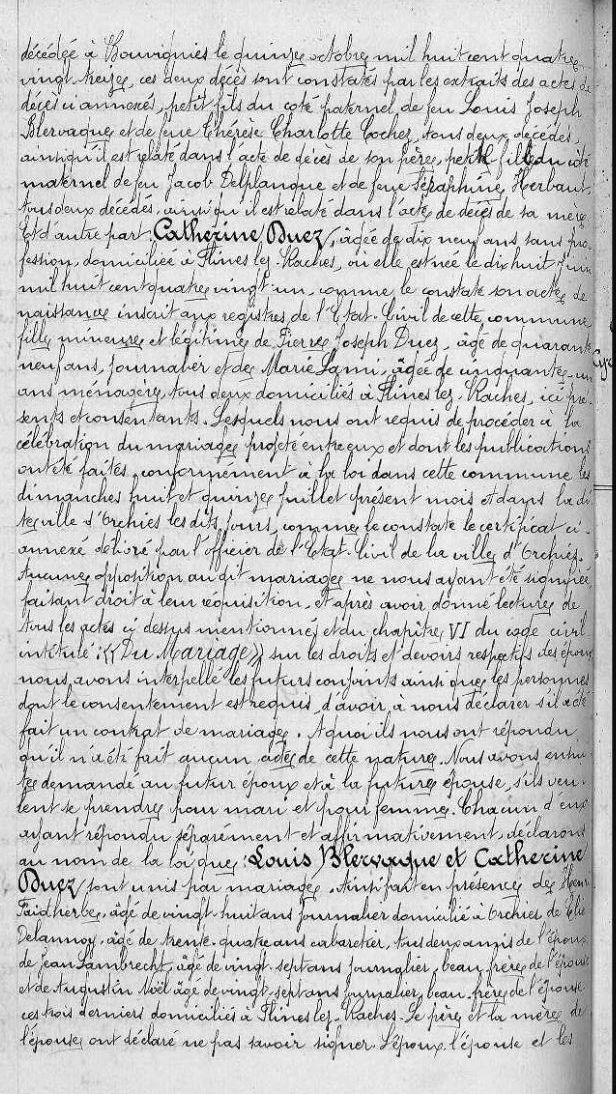 décédée à Bouvignies le quinze octobre mil huit cent quatre
vingt-treize, ces deux décès sont constatés par les extraits des actes de
décès ci annexés, petit fils du coté paternel de feu Louis Joseph
Blervaque et de feue Thérèse Charlotte Cochez, tous deux décédés,
ainsi qu'il est relaté dans l'acte de décès de son père, petit fils du côté
maternel de feu Jacob Delplanque et de feue Séraphine Herbaut
tous deux décédés, ainsi qu'il est relaté dans l'acte de décès de sa mère
Et d'autre part: Catherine Duez, âgée de dix neuf ans sans pro-
fession, domiciliée à Flines lez-Raches, où elle est née le dix huit Juin
mil huit cent quatre vingt-un, comme le constate son acte de
naissance inscrit aux registres de l'Etat-Civil de cette commune
fille mineure et légitime de Pierre Joseph Duez, âgé de quarante
neuf ans, journalier et de Marie Lami, âgée de cinquante-un
ans ménagère, tous deux domiciliés à Flines lez-Raches, ici pré-
sents et consentants. Lesquels nous ont requis de procéder à la
célébration du mariage projeté entre eux et dont les publications
ont été faites, conformément à la loi dans cette commune les
dimanches huit et quinze juillet présent mois et dans la di-
te ville d'Orchies les dits jours, comme le constate le certificat ci-
annexé délivré par l'officier de l'Etat-Civil de la ville d'Orchies.
Aucune opposition au dit mariage ne nous ayant été signifiée
faisant droit à leur réquisition, et après avoir donné lecture de
tous les actes ci dessus mentionnés et du chapitre VI du code civil
intitulé: «Du Mariage» sur les droits et devoirs respectifs des époux
nous avons interpellé les futurs conjoints ainsi que les personnes
dont le consentement est requis, d'avoir à nous déclarer s'il a été
fait un contrat de mariage. A quoi ils nous ont répondu
qu'il n'a été fait aucun acte de cette nature. Nous avons ensui-
te demandé au futur époux et à la future épouse, s'ils veu-
lent se prendre pour mari et pour femme. Chacun d'eux
ayant répondu séparément et affirmativement, déclarons
au nom de la loi que: Louis Blervaque et Catherine
Duez sont unis par mariage. Ainsi fait en présence de Henri
Faidherbe, âgé de vingt-huit ans journalier domicilié à Orchies de Elie
Delannoy, âgé de trente-quatre ans cabaretier, tous deux amis de l'époux
de Jean Lambrecht, âgé de vingt-sept ans journalier, beau frère de l'épouse
et de Augustin Noël âgé de vingt-sept ans journalier, beau frère de l'épouse
ces trois derniers domiciliés à Flines lez-Raches. Le père et la mère de
l'épouse ont déclaré ne pas savoir signer. L'époux, l'épouse et les